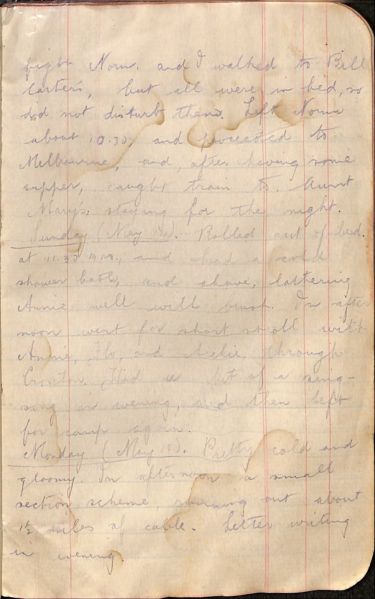 fight Norm. and I walked to Bill
Carter's, but all were in bed, so
did not disturb them. Left Norm
about 10.30, and proceeded to
Melbourne, and, after having some
supper, caught train to Aunt
Mary's, staying for the night.
Sunday (May). Rolled out of bed
at 11.30 a.m., and had a cold
shower bath, and shave, lathering
Annie well with brush. In after
noon went for short stroll with
Annie, and through
Croydon. Had a bit of a sing-
song in evening, and then left
for camp again.
Monday (May). Pretty cold and
gloomy. In afternoon a small
section scheme, running out about
1½ miles of cable. Letter writing
in evening.